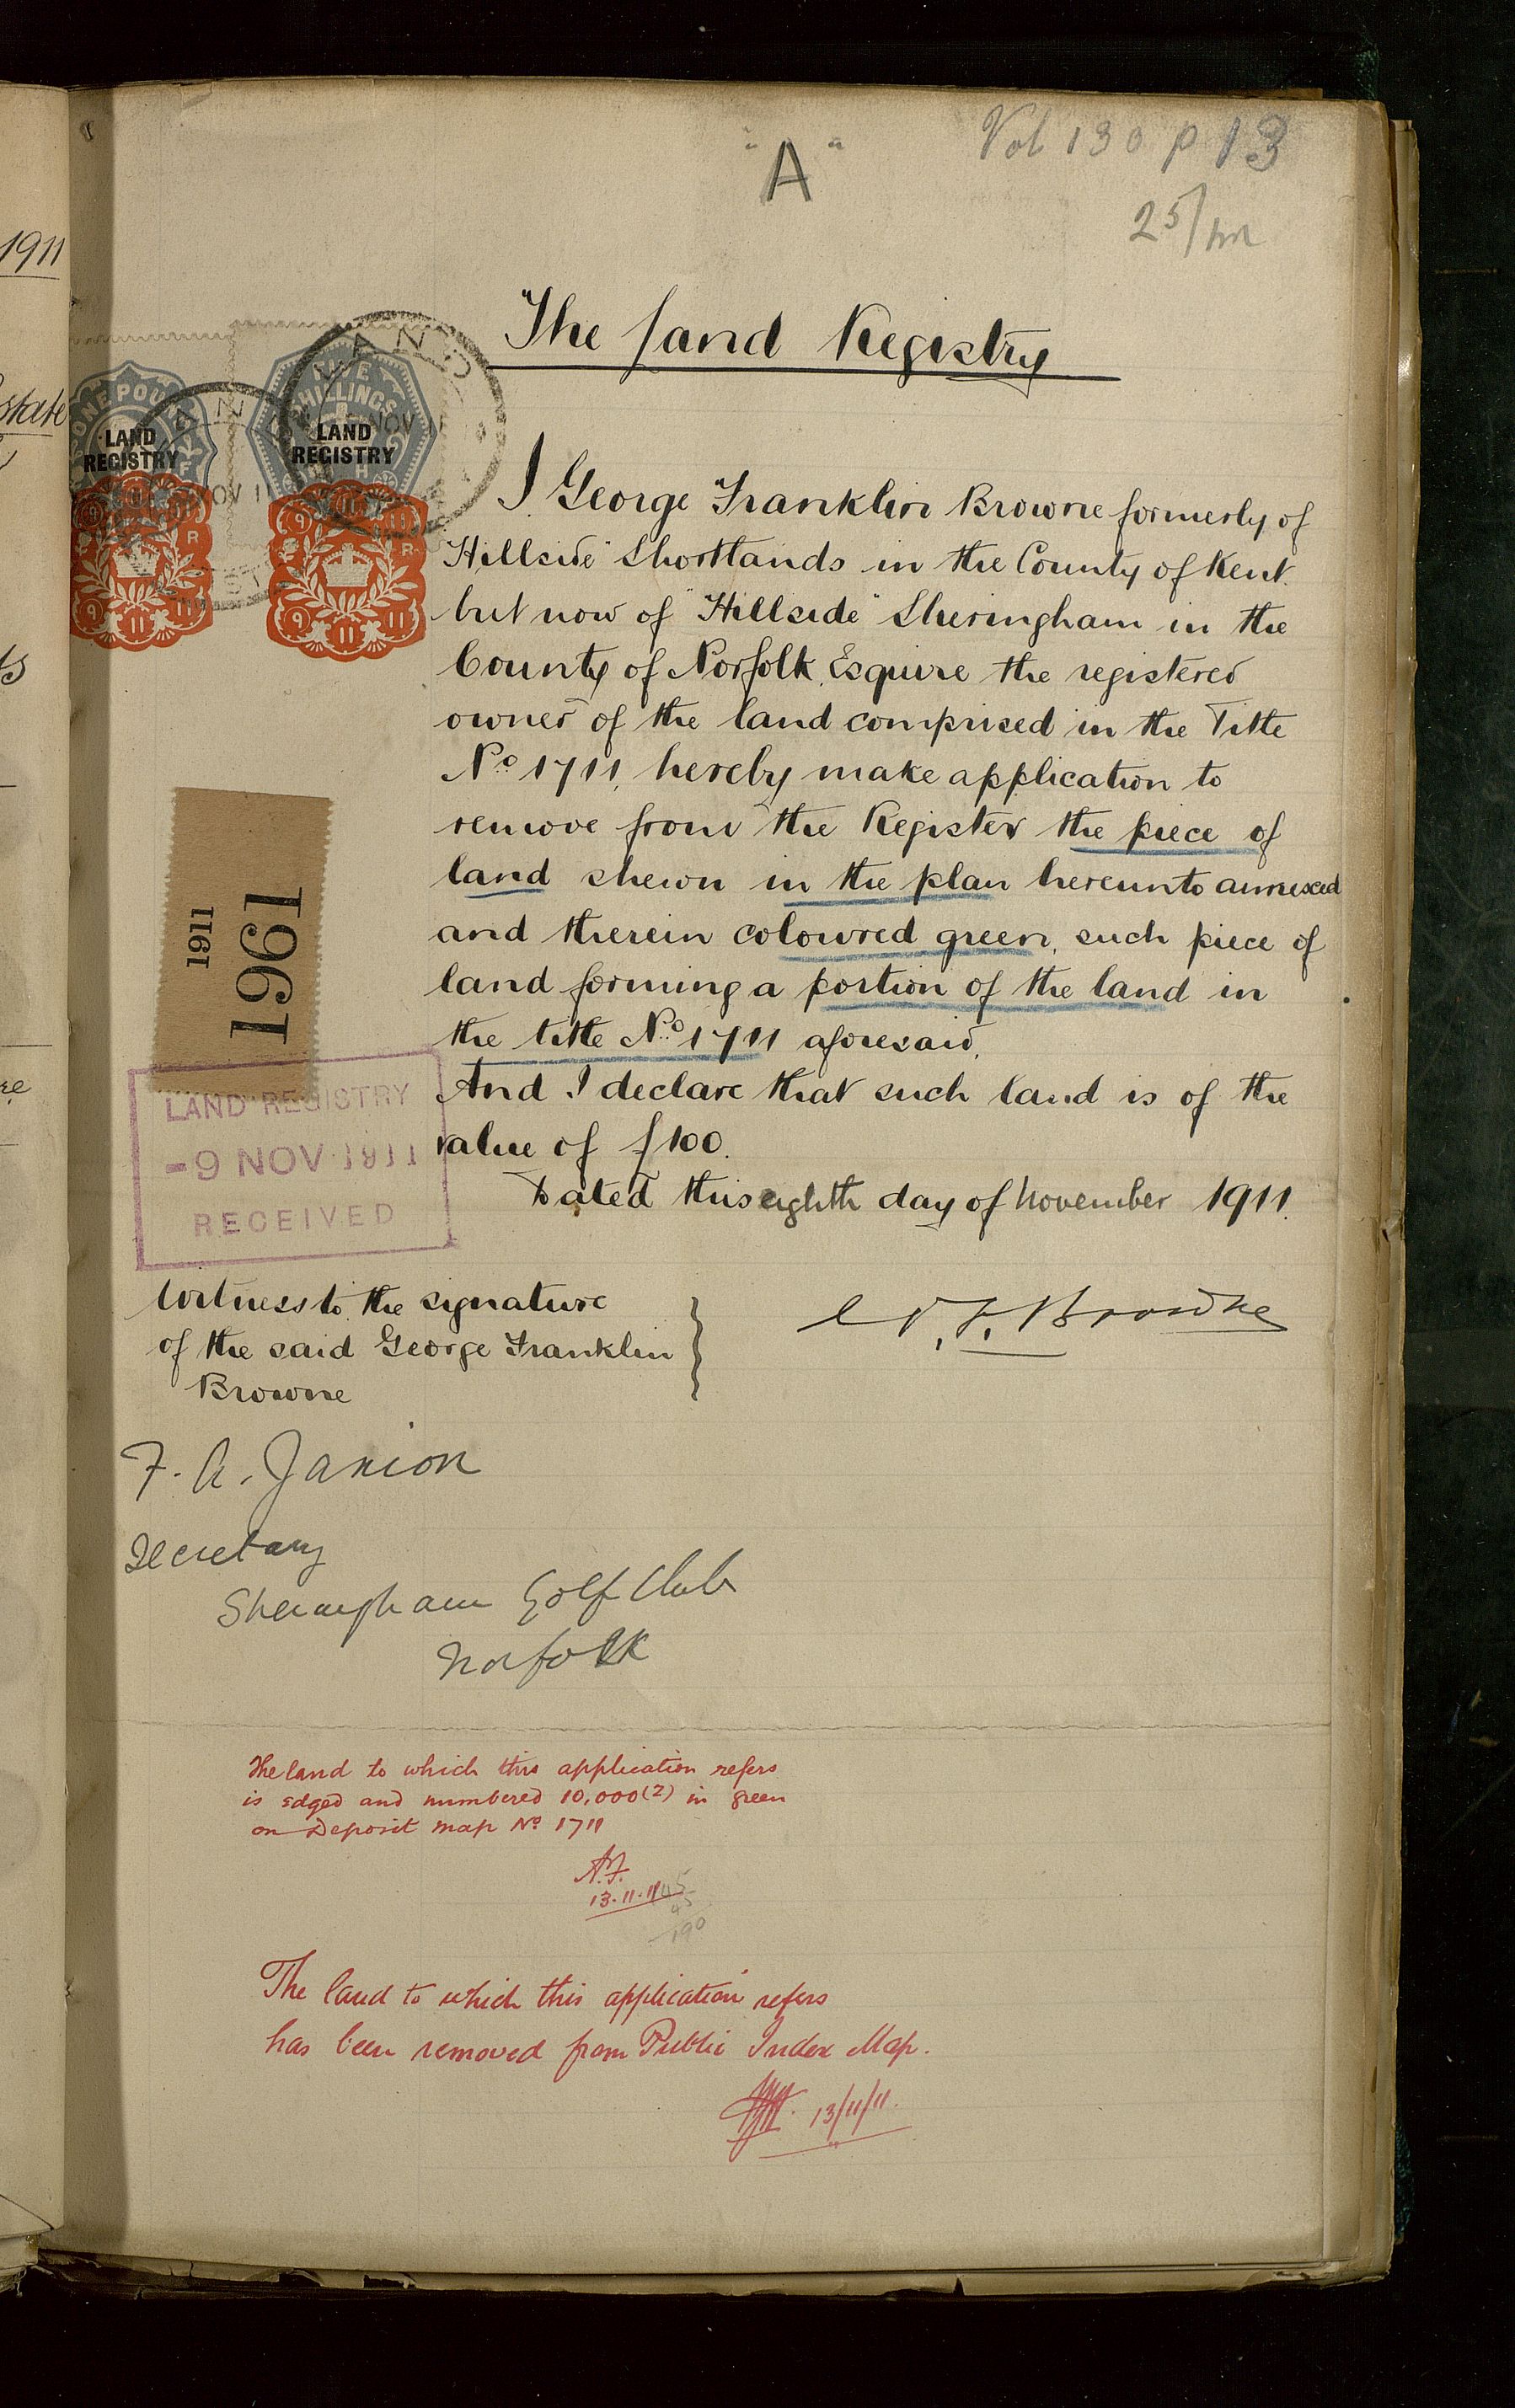 1911
"A"
Vol 130 p 13
25/
The Land Registry
ONE POUND
LAND
REGISTRY
FIVE
SHILLINGS
LAND
REGISTRY
I George Franklin Browne formerly of
"Hillside" Shortlands in the County of Kent
but now of "Hillside" Sheringham in the
County of Norfolk, Esquire the registered
owner of the land comprised in the Title
No 1711, hereby make application to
remove from the Register the piece of
land shewn in the plan hereunto annexed
and therein coloured green, such piece of
land forming a portion of the land in
the title No 1711 aforesaid.
And I declare that such land is of the
value of £100.
Dated this eighth day of November 1911.
1911
1961
LAND REGISTRY
-9 NOV 1911
RECEIVED
Witness to the signature
of the said George Franklin
Browne
G. F. Browne
F. A. Janion
Secretary
Sheringham Golf Club
Norfolk
The land to which this application refers
is edged and numbered 10,000(2) in green
on Deposit Map No 1711
A.F.
13.11.11
45
45
190
The land to which this application refers
has been removed from Public Index Map.
13/11/11.